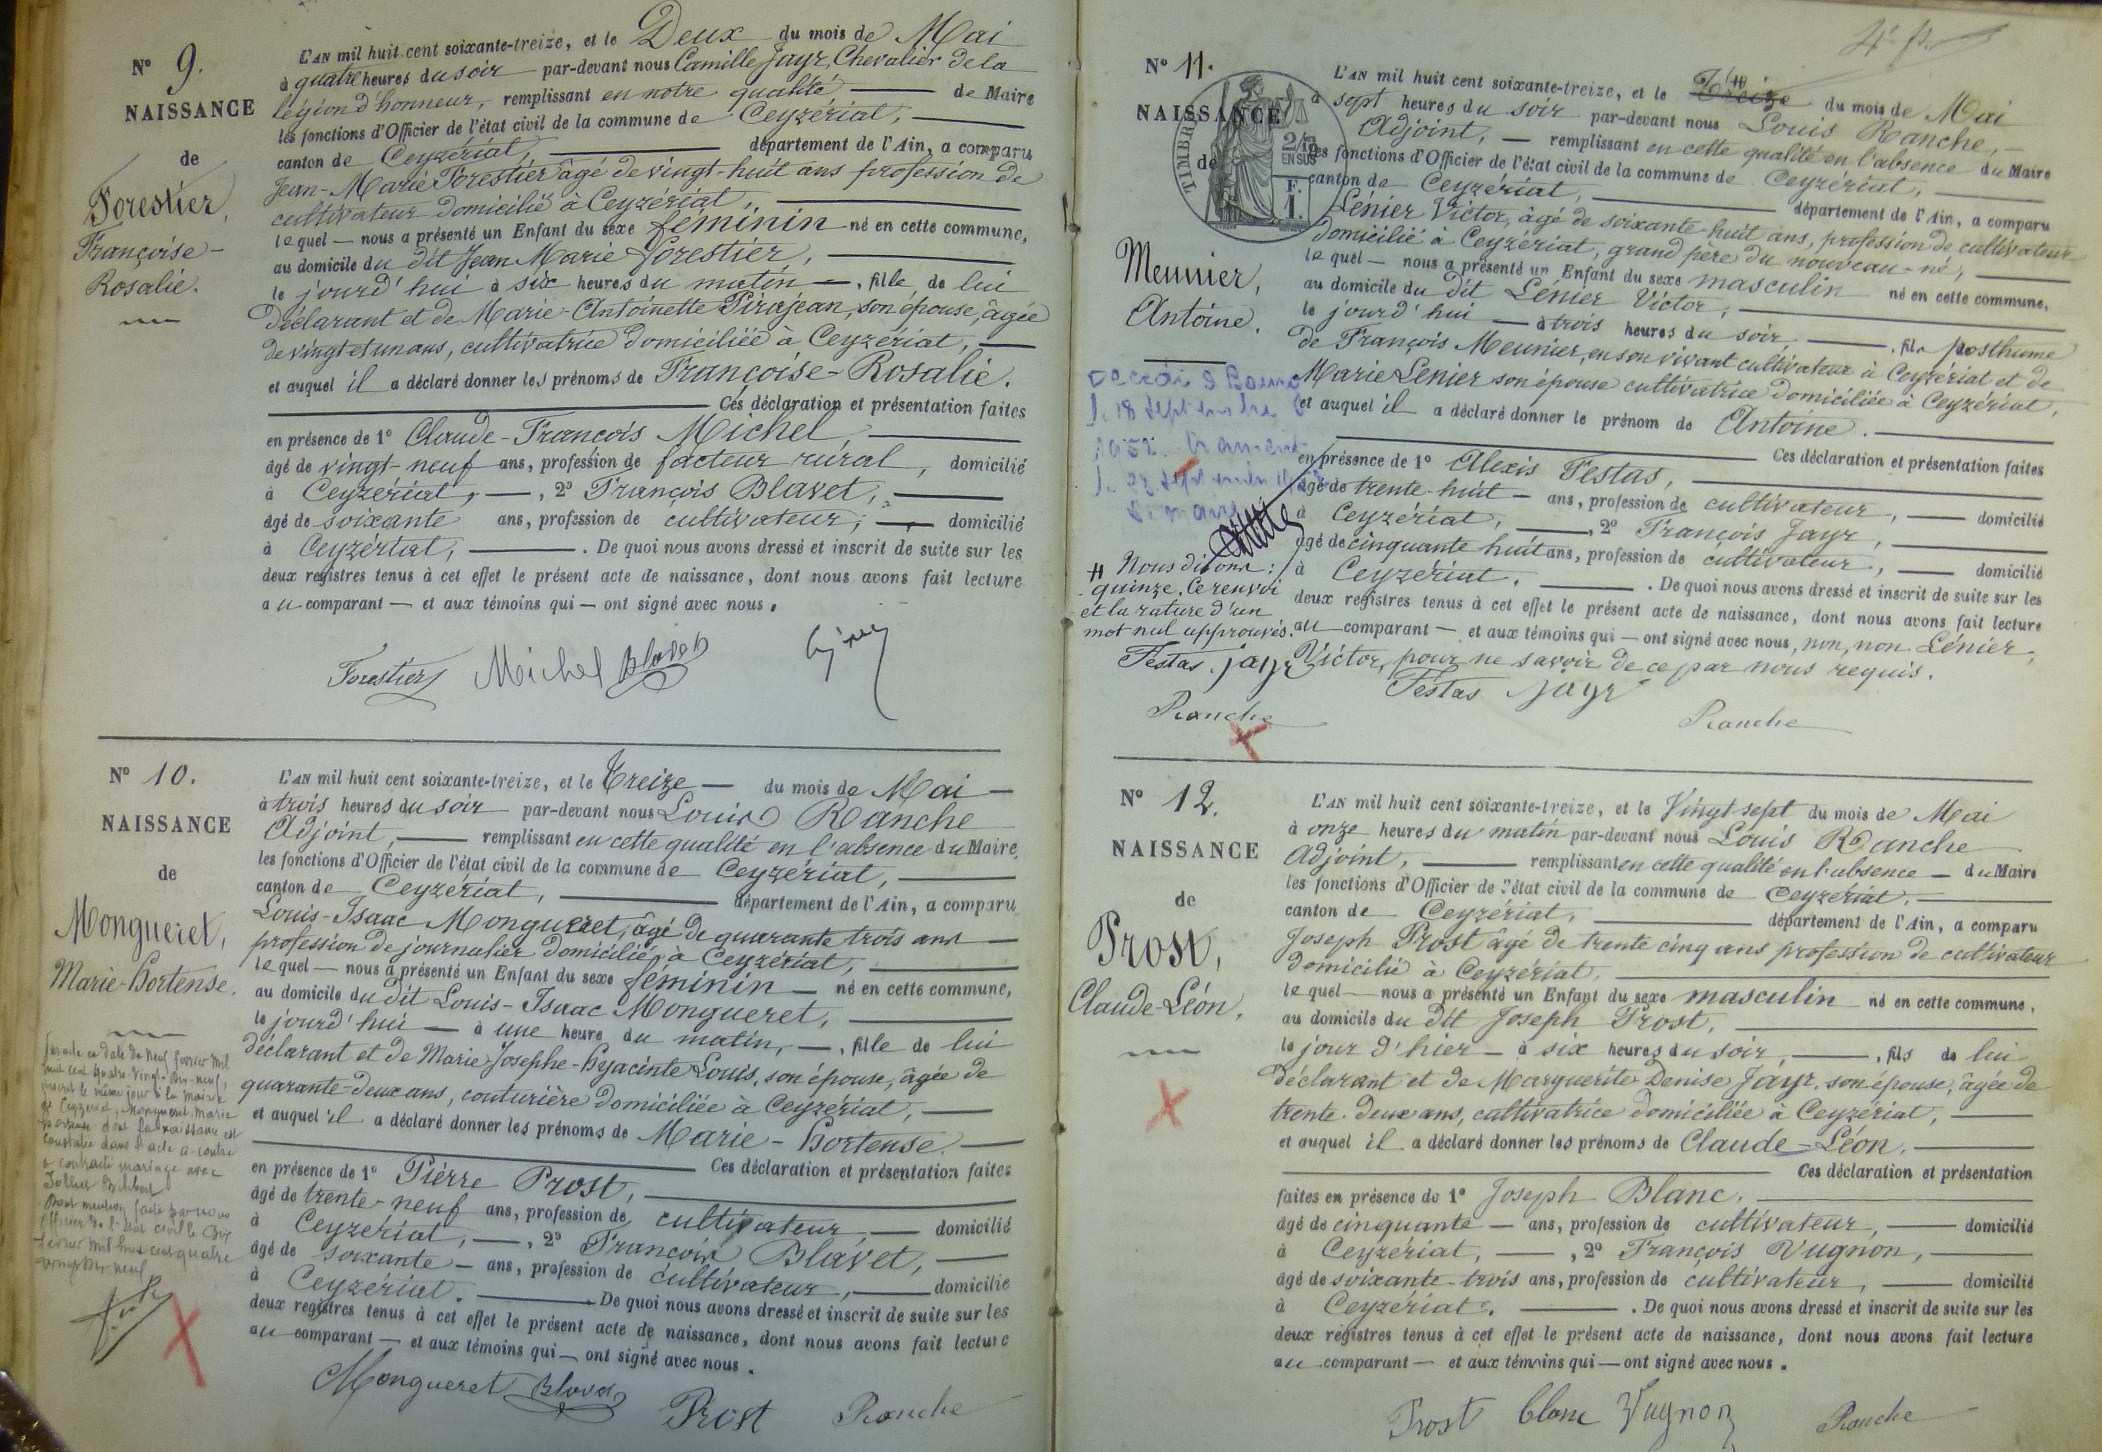 N° 9.
NAISSANCE
de
Forestier,
Françoise-
Rosalie.
L'AN mil huit cent soixante-treize, et le Deux du mois de Mai
à quatre heures du soir par-devant nous Camille Jayr, Chevalier de la
légion d'honneur, remplissant en notre qualité de Maire
les fonctions d'Officier de l'état civil de la commune de Ceyzériat,
canton de Ceyzériat, département de l'Ain, a comparu
Jean-Marie Forestier âgé de vingt-huit ans profession de
cultivateur domicilié à Ceyzériat,
lequel nous a présenté un Enfant du sexe féminin né en cette commune,
au domicile du dit Jean Marie Forestier,
le jourd'hui à six heures du matin, fille de lui
déclarant et de Marie-Antoinette Pirajean, son épouse, âgée
de vingt et un ans, cultivatrice domiciliée à Ceyzériat,
et auquel il a déclaré donner les prénoms de Françoise-Rosalie.
Ces déclaration et présentation faites
en présence de 1° Claude-François Michel,
âgé de vingt-neuf ans, profession de facteur rural, domicilié
à Ceyzériat, 2° François Blavet,
âgé de soixante ans, profession de cultivateur, domicilié
à Ceyzériat, . De quoi nous avons dressé et inscrit de suite sur les
deux registres tenus à cet effet le présent acte de naissance, dont nous avons fait lecture
au comparant et aux témoins qui ont signé avec nous.
Forestier Michel Blavet
N° 10.
NAISSANCE
de
Mongueret,
Marie-Hortense.
L'AN mil huit cent soixante-treize, et le Treize du mois de Mai
à trois heures du soir par-devant nous Louis Ranche
Adjoint, remplissant en cette qualité en l'absence du Maire,
les fonctions d'Officier de l'état civil de la commune de Ceyzériat,
canton de Ceyzériat, département de l'Ain, a comparu
Louis-Isaac Mongueret, âgé de quarante trois ans
profession de journalier domicilié à Ceyzériat,
lequel nous a présenté un Enfant du sexe féminin né en cette commune,
au domicile du dit Louis-Isaac Mongueret,
le jourd'hui à une heure du matin, fille de lui
déclarant et de Marie-Josephe-Hyacinte Louis, son épouse, âgée de
quarante-deux ans, couturière domiciliée à Ceyzériat,
et auquel il a déclaré donner les prénoms de Marie-Hortense.
Ces déclaration et présentation faites
en présence de 1° Piérre Prost,
âgé de trente-neuf ans, profession de cultivateur, domicilié
à Ceyzériat, 2° François Blavet,
âgé de soixante ans, profession de cultivateur, domicilié
à Ceyzériat. De quoi nous avons dressé et inscrit de suite sur les
deux registres tenus à cet effet le présent acte de naissance, dont nous avons fait lecture
au comparant et aux témoins qui ont signé avec nous.
Mongueret Blavet Prost Ranche
Par acte en date du neuf février mil
huit cent quatre-vingt-dix-neuf,
inscrit le même jour à la mairie
de Ceyzériat, Mongueret Marie
Hortense dont la naissance est
constatée dans l'acte ci-contre
a contracté mariage avec
Dont mention faite par nous
officier de l'état civil le dix
février mil huit cent quatre
vingt dix neuf
N° 11.
NAISSANCE
de
TIMBRE
2/10 EN SUS
F. 1.
Meunier,
Antoine.
L'AN mil huit cent soixante-treize, et le Treize du mois de Mai
à sept heures du soir par-devant nous Louis Ranche,
Adjoint, remplissant en cette qualité en l'absence du Maire
les fonctions d'Officier de l'état civil de la commune de Ceyzériat,
canton de Ceyzériat, département de l'Ain, a comparu
Lénier Victor, âgé de soixante-huit ans, profession de cultivateur
domicilié à Ceyzériat, grand père du nouveau-né,
lequel nous a présenté un Enfant du sexe masculin né en cette commune,
au domicile du dit Lénier Victor,
le jourd'hui à trois heures du soir, fils posthume
de François Meunier, en son vivant cultivateur à Ceyzériat et de
Marie Lenier son épouse cultivatrice domiciliée à Ceyzériat,
et auquel il a déclaré donner le prénom de Antoine.
Ces déclaration et présentation faites
en présence de 1° Alexis Festas,
âgé de trente-huit ans, profession de cultivateur, domicilié
à Ceyzériat, 2° François Jayr,
âgé de cinquante huit ans, profession de cultivateur, domicilié
à Ceyzériat. De quoi nous avons dressé et inscrit de suite sur les
deux registres tenus à cet effet le présent acte de naissance, dont nous avons fait lecture
au comparant et aux témoins qui ont signé avec nous, non, non Lénier,
Victor, pour ne savoir de ce par nous requis.
Festas Jayr
Ranche
18 septembre
Nous disons:
quinze. Ce renvoi
et la rature d'un
mot nul approuvés.
Festas. Jayr
Ranche
N° 12.
NAISSANCE
de
Prost,
Claude-Léon.
L'AN mil huit cent soixante-treize, et le Vingt sept du mois de Mai
à onze heures du matin par-devant nous Louis Ranche
Adjoint, remplissant en cette qualité en l'absence du Maire
les fonctions d'Officier de l'état civil de la commune de Ceyzériat,
canton de Ceyzériat, département de l'Ain, a comparu
Joseph Prost âgé de trente cinq ans profession de cultivateur
domicilié à Ceyzériat,
lequel nous a présenté un Enfant du sexe masculin né en cette commune,
au domicile du dit Joseph Prost,
le jour d'hier à six heures du soir, fils de lui
déclarant et de Marguerite Denise Jayr, son épouse, âgée de
trente-deux ans, cultivatrice domiciliée à Ceyzériat,
et auquel il a déclaré donner les prénoms de Claude-Léon.
Ces déclaration et présentation
faites en présence de 1° Joseph Blanc,
âgé de cinquante ans, profession de cultivateur, domicilié
à Ceyzériat, 2° François Vugnon,
âgé de soixante-trois ans, profession de cultivateur, domicilié
à Ceyzériat. De quoi nous avons dressé et inscrit de suite sur les
deux registres tenus à cet effet le présent acte de naissance, dont nous avons fait lecture
au comparant et aux témoins qui ont signé avec nous.
Prost blanc Vugnon Ranche